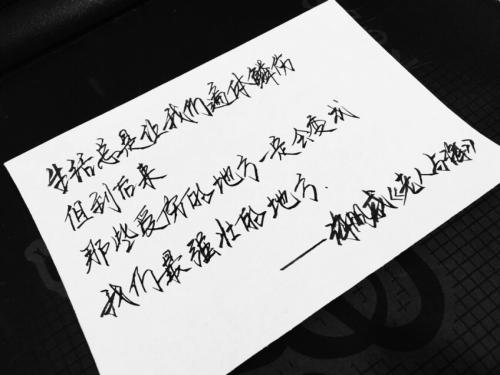 生活总是让我们遍体鳞伤
但到后来
那些受伤的地方一定会变成
我们最强壮的地方.
——海明威《老人与海》